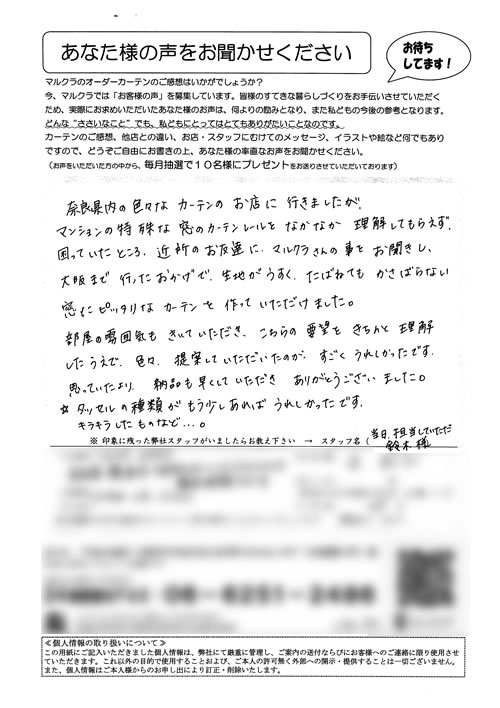 あなた様の声をお聞かせください
お待ち
してます！
マルクラのオーダーカーテンのご感想はいかがでしょうか？
今、マルクラでは「お客様の声」を募集しています。皆様のすてきな暮らしづくりをお手伝いさせていただく
ため、実際にお求めいただいたあなた様のお声は、何よりの励みとなり、また私どもの今後の参考となります。
どんな“ささいなこと”でも、私どもにとってはとてもありがたいことなのです。
カーテンのご感想、他店との違い、お店・スタッフにむけてのメッセージ、イラストや絵など何でもあり
ですので、どうぞご自由にお書きの上、あなた様の率直なお声をお聞かせください。
（お声をいただいた方の中から、毎月抽選で１０名様にプレゼントをお送りさせていただいております）
奈良県内の色々な カーテンの お店に 行きましたが、
マンションの特殊な窓のカーテンレールを なかなか 理解してもらえず、
困っていたところ、近所のお友達に、マルクラさんの事をお聞きし、
大阪まで 行ったおかげで、生地がうすく、たばねても かさばらない
窓にピッタリな カーテンを 作っていただけました。
部屋の雰囲気も きいていただき、こちらの 要望を きちんと 理解
したうえで、色々、提案していただいたのが、すごく うれしかったです。
思っていたより、納品も早くしていただき ありがとうございました。
☆ タッセルの種類が もう少しあれば うれしかったです。
キラキラしたものなど…。
※ 印象に残った弊社スタッフがいましたらお教え下さい → スタッフ名（ 当日、担当していただ
鈴木様
06-6251-2486
≪個人情報の取り扱いについて≫
この用紙にご記入いただきました個人情報は、弊社にて厳重に管理し、ご案内の送付ならびにお客様へのご連絡に限り使用させ
ていただきます。これ以外の目的で使用することおよび、ご本人の許可無く外部への開示・提供することは一切ございません。
また、個人情報はご本人様からのお申し出により訂正・削除いたします。